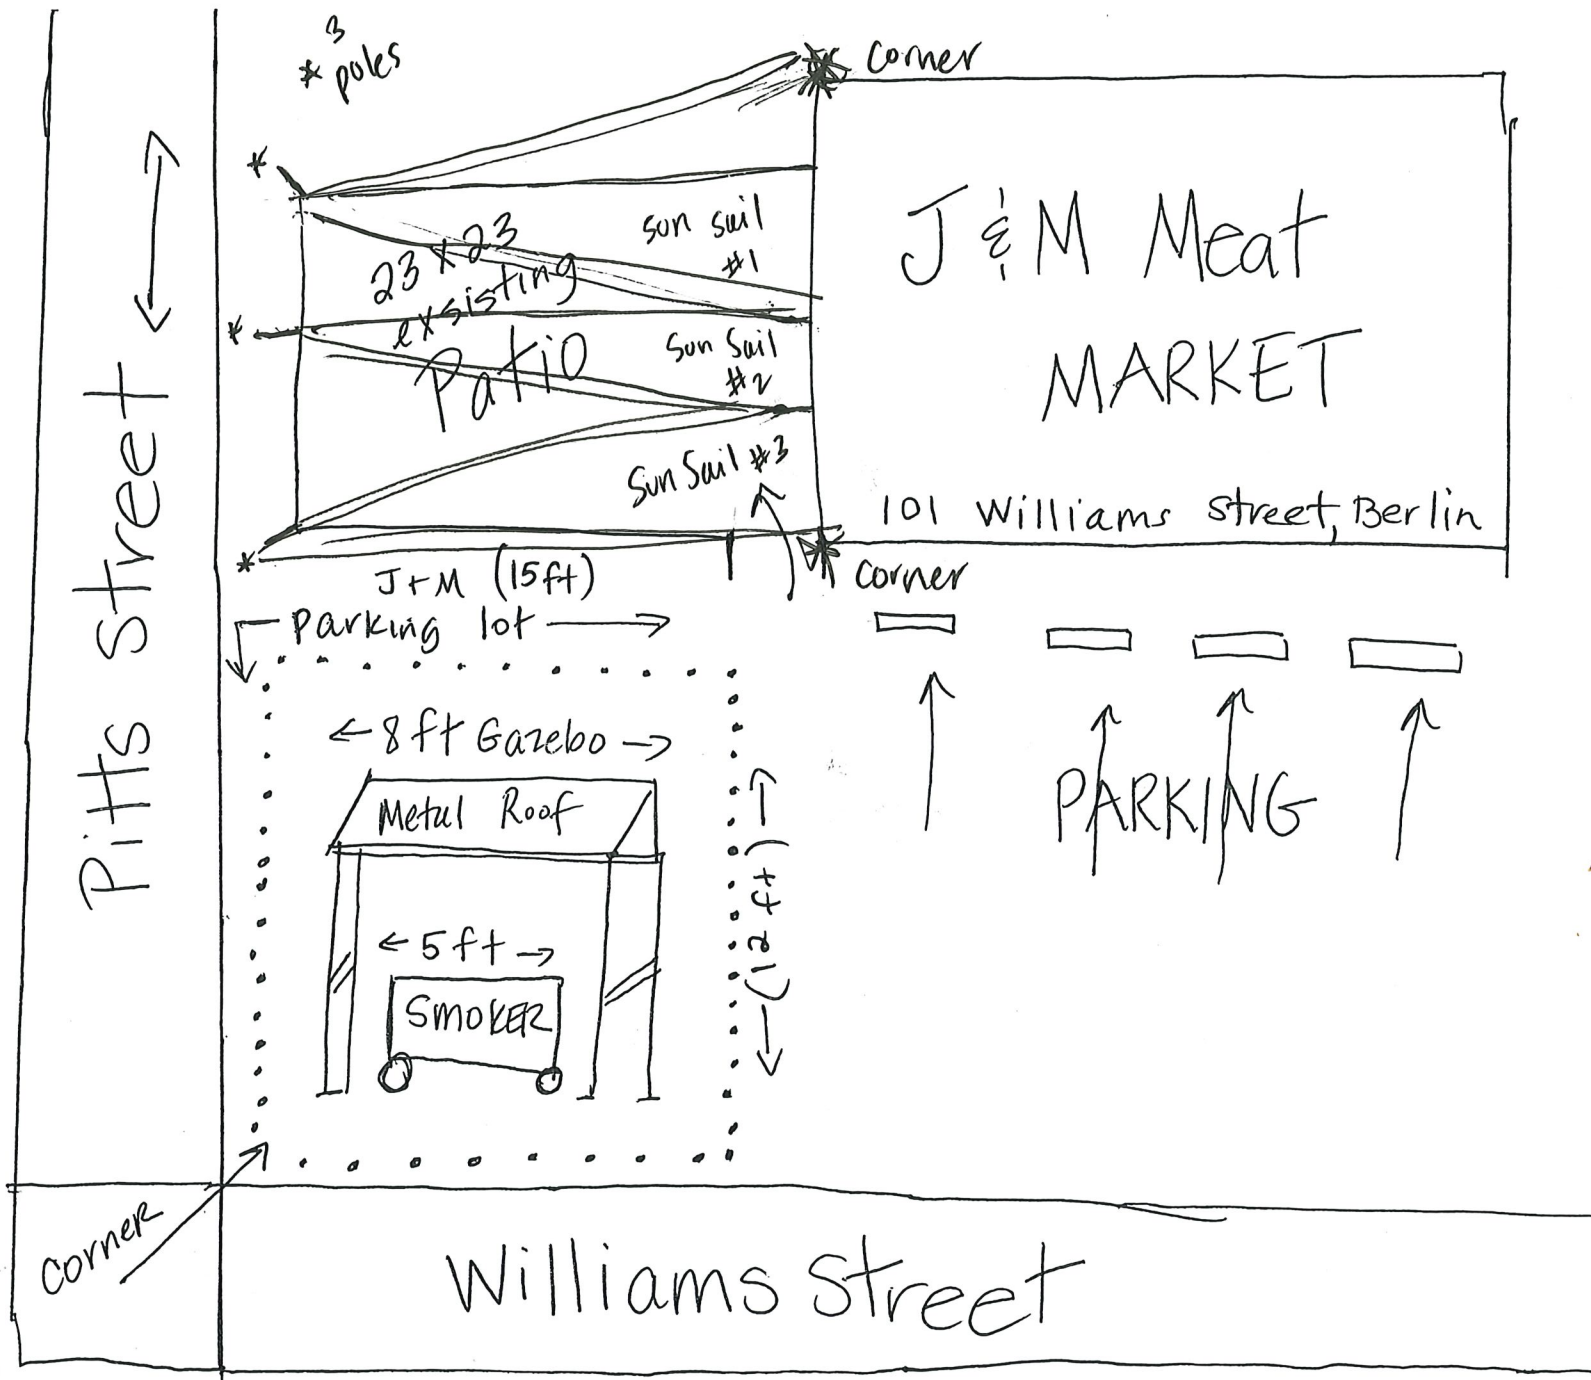 3
* poles
corner
Pitts Street
23 x 23
exsisting
Patio
sun sail
#1
Sun Sail
#2
Sun Sail #3
J & M Meat
MARKET
101 Williams Street, Berlin
corner
J+M (15ft)
Parking lot
8ft Gazebo
Metal Roof
5ft
SMOKER
(12 ft)
PARKING
corner
Williams Street